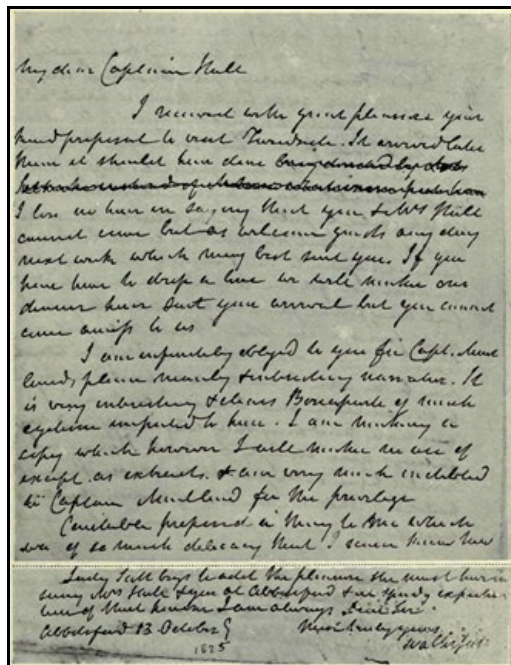 My dear Captain Hall
I received with great pleasure your
kind proposal to visit Tweedside. It arrived later
than it should have done
I lose no time in saying that you & Mrs Hall
cannot come but as welcome guests any day
next week which may best suit you. If you
have time to drop a line we will make our
dinner hour suit your arrival but you cannot
come amiss to us
I am infinitely obliged to you for Capt. Mait
lands plain manly & interesting narrative. It
is very interesting & clears Bonaparte of much
egotism imputed to him. I am making a
copy which however I will make no use of
except as extracts. & am very much indebted
to Captain Maitland for the privilege
Constable proposed a thing to me which
was of so much delicacy that I scarce know how
Lady Scott begs to add the pleasure she must have in
seeing Mrs Hall & you at Abbotsford & in speedy expecta
tion of that honour I am always Dear Sir
Abbotsford 13 October Most truly yours
1825 Walter Scott